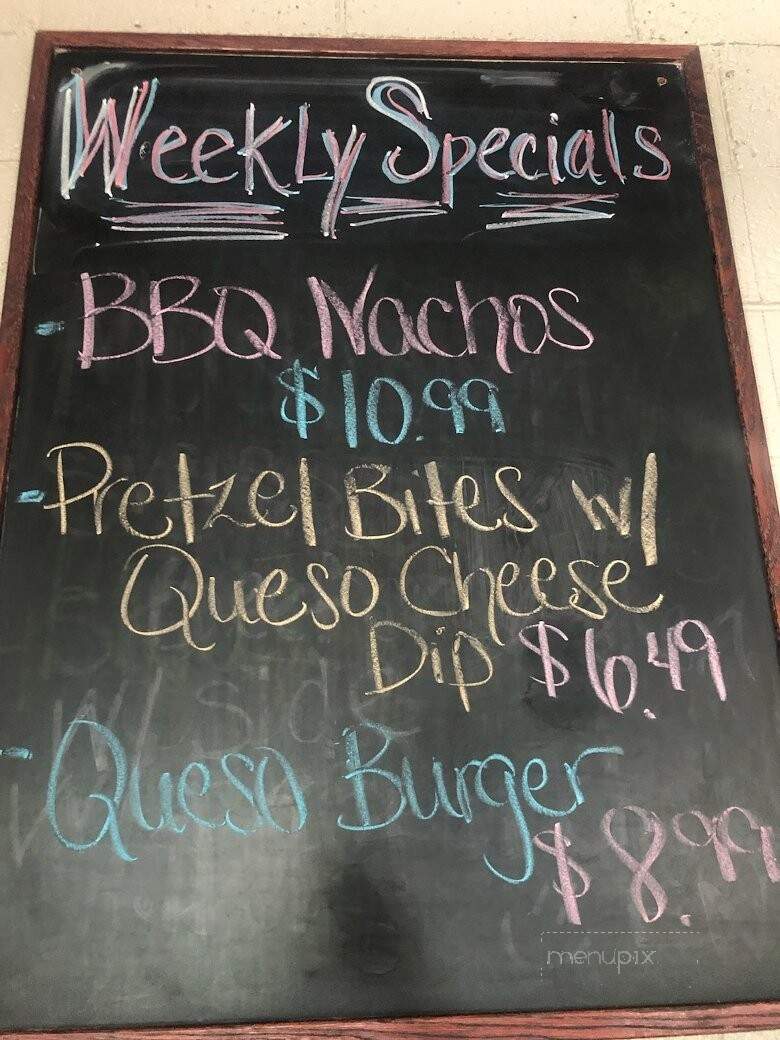 Weekly Specials
- BBQ Nachos
$10.99
- Pretzel Bites w/
Queso Cheese
Dip $6.49
- Queso Burger
$8.99
menupix